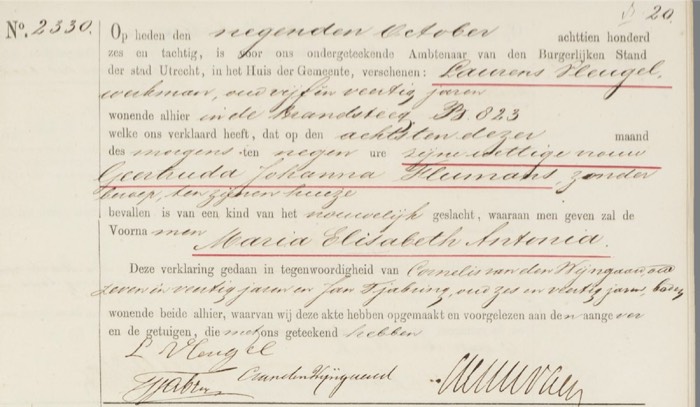 No. 2330.
20.
Op heden den negenden October achttien honderd
zes en tachtig, is voor ons ondergeteekende Ambtenaar van den Burgerlijken Stand
der stad Utrecht, in het Huis der Gemeente, verschenen: Laurens Vleugel,
werkman, oud vijf en veertig jaren
wonende alhier in de Brandsteeg B. 823
welke ons verklaard heeft, dat op den achtsten dezer maand
des morgens ten negen ure zijne wettige vrouw
Geertruda Johanna Flumans, zonder
beroep, ten zijnen huize
bevallen is van een kind van het vrouwelijk geslacht, waaraan men geven zal de
Voornamen
Maria Elisabeth Antonia.
Deze verklaring gedaan in tegenwoordigheid van Cornelis van den Wijngaard oud
zeven en veertig jaren en Jan Tjabring, oud zes en veertig jaren, boden
wonende beide alhier, waarvan wij deze akte hebben opgemaakt en voorgelezen aan den aangever
en de getuigen, die met ons geteekend hebben
L Vleugel
CvandenWijngaard